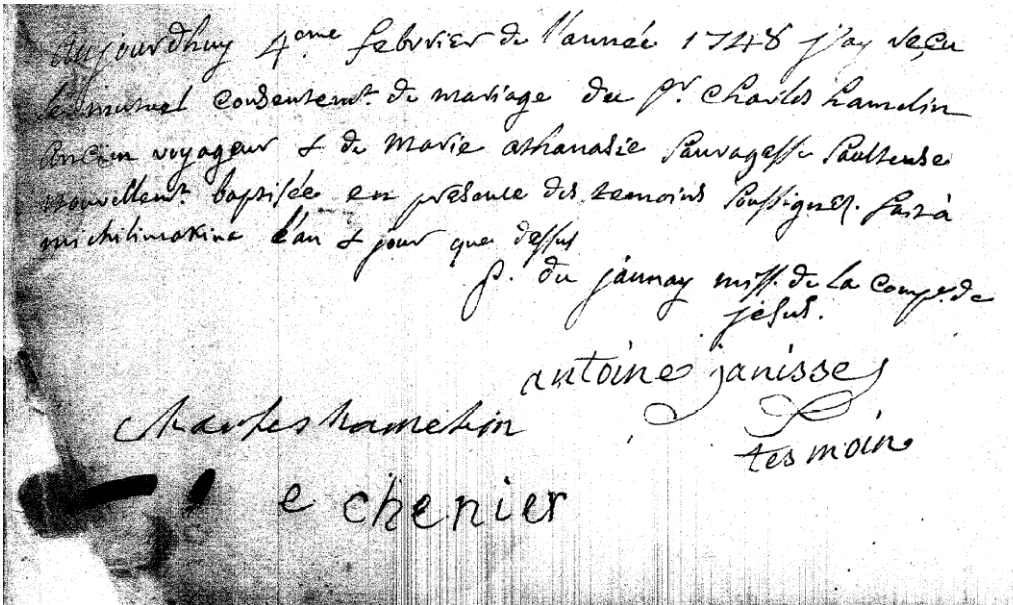 Aujourdhuy 4eme febvrier de l'année 1748 j'ay reçu
le mutuel consentemt. de mariage du Sr. Charles hamelin
ancien voyageur & de Marie athanasie Sauvagesse Saulteuse
nouvellemt. baptisée en presence des temoins soussignez. fait à
michilimakina l'an & jour que dessus
p. du jaunay miss. de la Compe. de
jesus.
antoine janisse
charles hamelin
tesmoin
e chenier